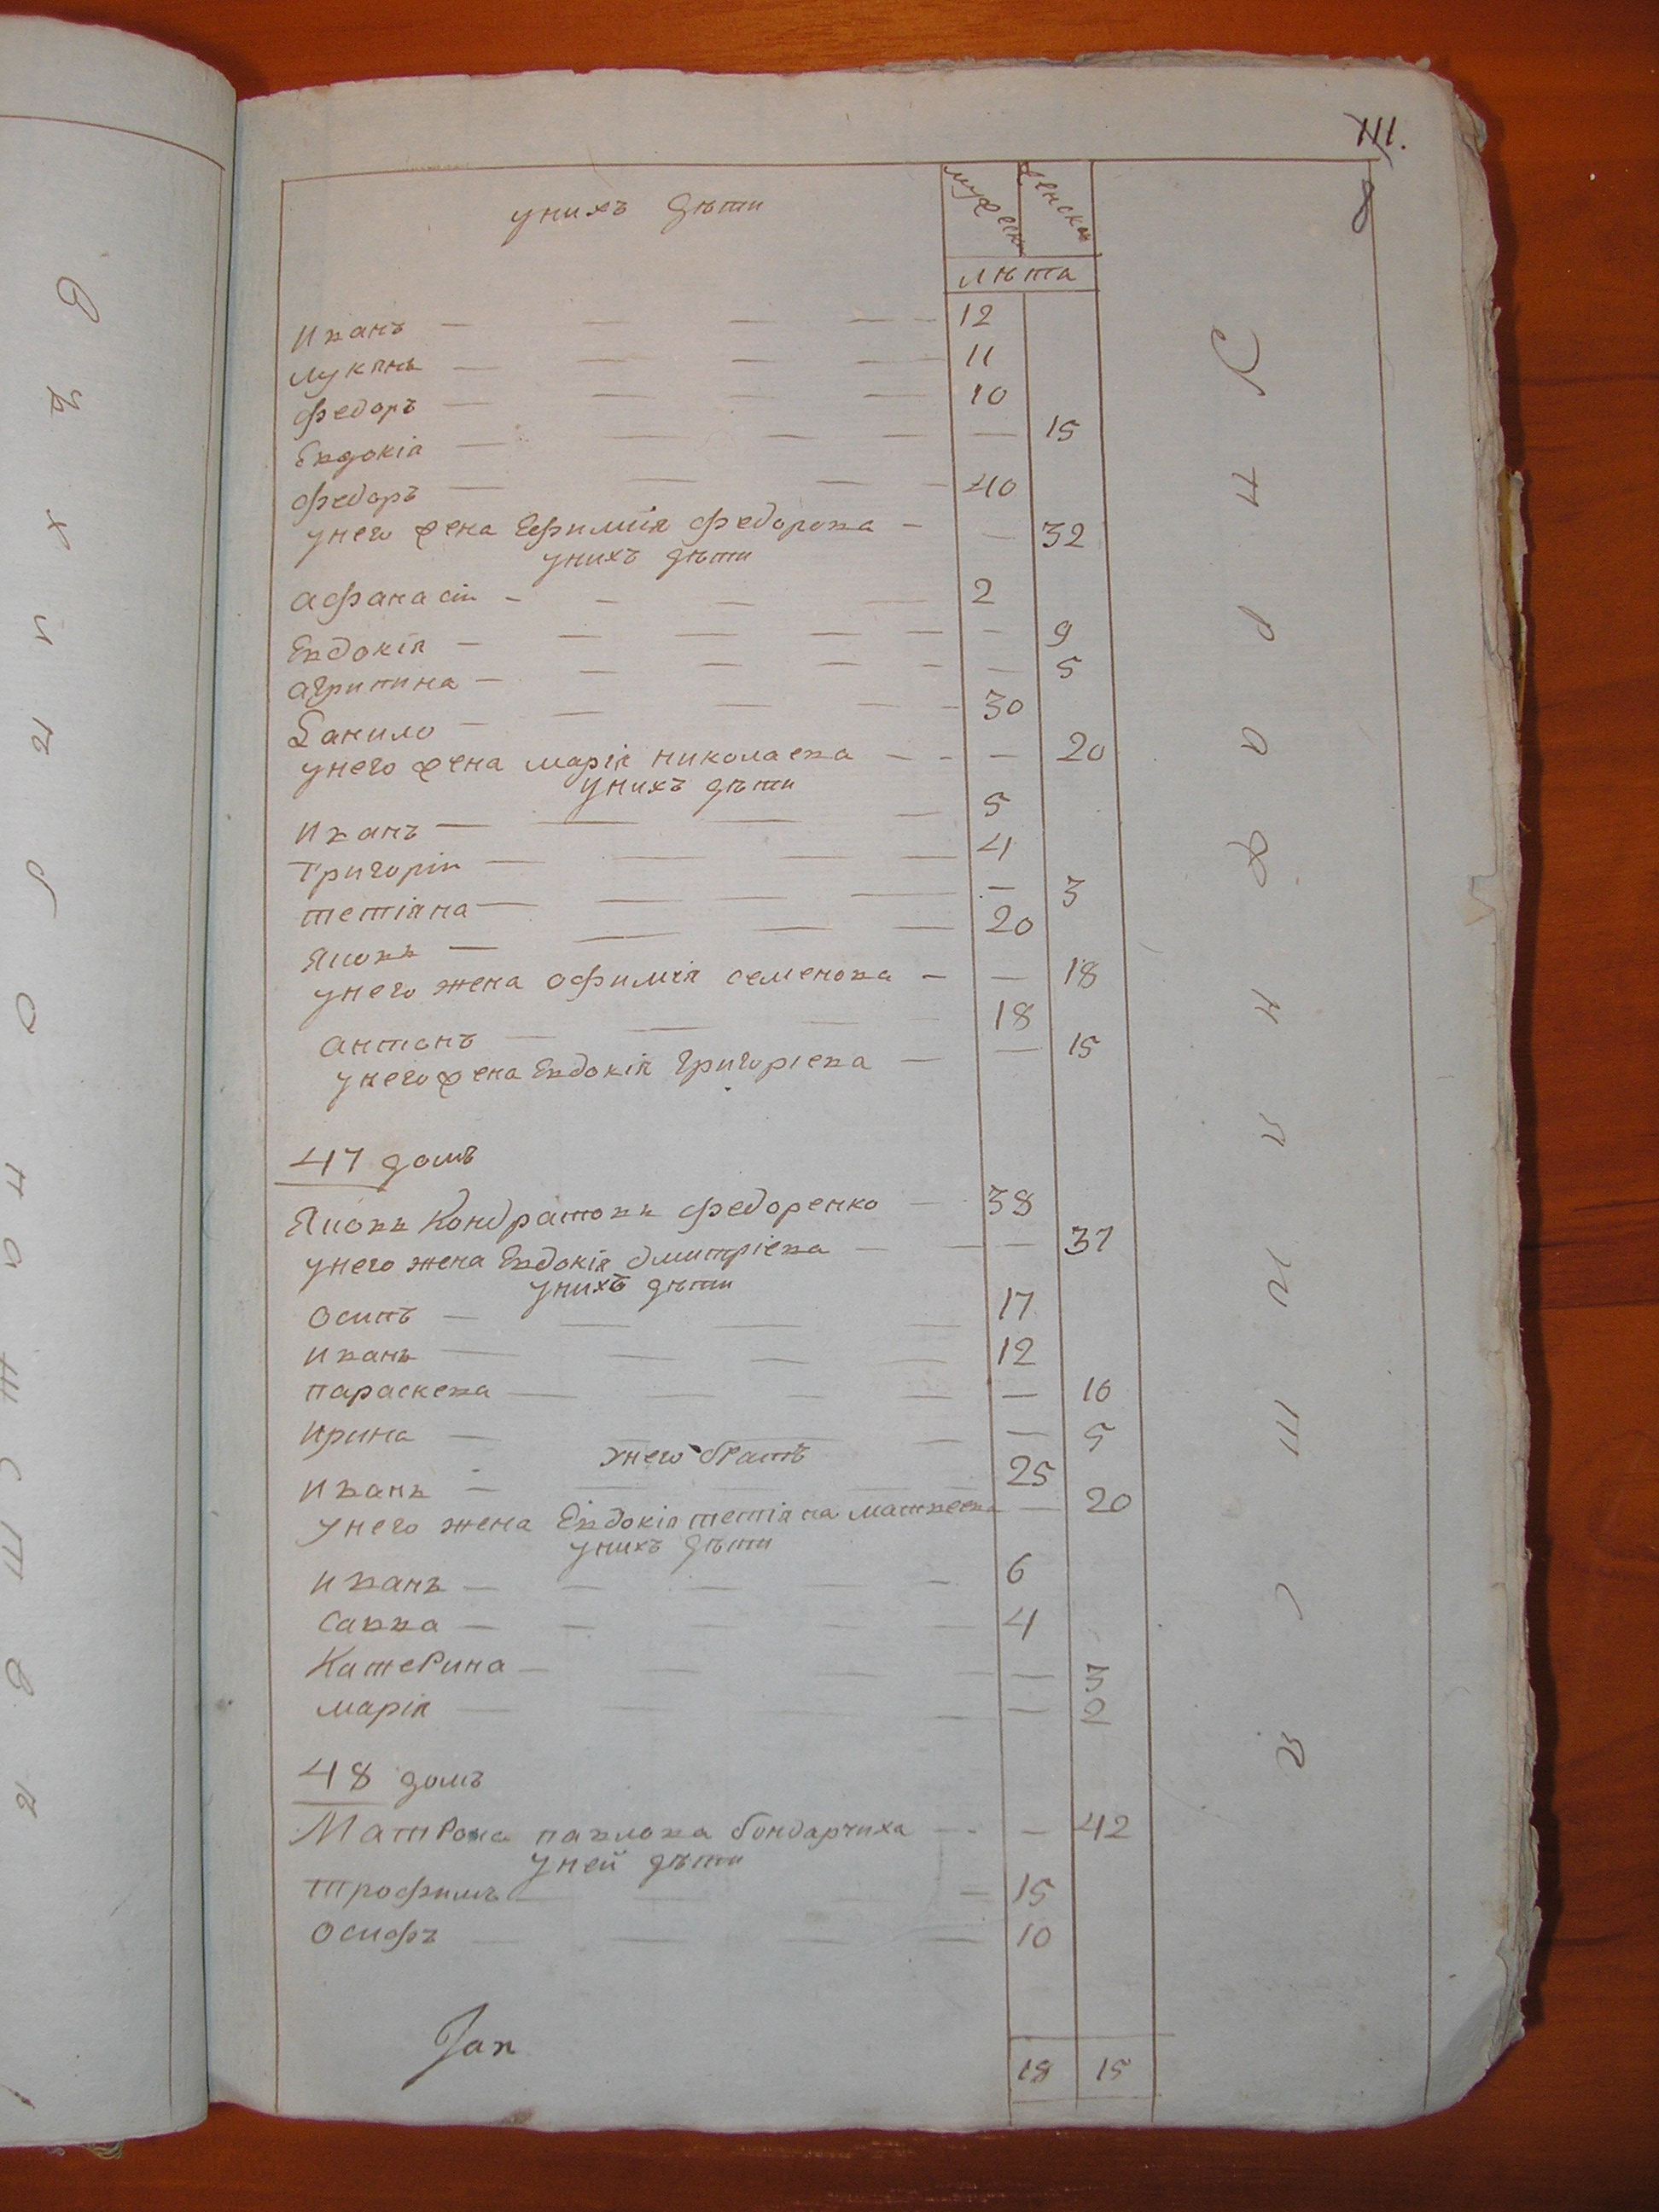 111.
8
унихъ дѣти
мужеска
женска
лѣта
Иванъ — — — — 12
Лукянъ — — — 11
Федоръ — — — — 10
Евдокія — — — — — 15
Федоръ — — — — 40
унего жена Ефимия Федорова — — 32
унихъ дѣти
Афанасій — — — — 2
Евдокія — — — — — — 9
Агрипина — — — — — — 5
Данило — — — — — 30
унего жена Марія Николаева — — — 20
унихъ дѣти
Иванъ — — — — 5
Григорій — — — — 4
Тетіана — — — — — 3
Яковъ — — — — 20
унего жена Офимія Семенова — — 18
Антонъ — — — — 18
унего жена Евдокія Григоріева — — 15
47 домъ
Яковъ Кондратовъ Федоренко — 38
унего жена Евдокія Дмитріева — — — 37
унихъ дѣти
Осипъ — — — — 17
Иванъ — — — — 12
Параскева — — — — — 10
Ирина — — — — — 5
унего братъ
Иванъ — — — — 25
унего жена Евдокія Тетіана Матвеева — 20
унихъ дѣти
Иванъ — — — — 6
Савва — — — — — 4
Катерина — — — — — 3
Марія — — — — — 2
48 домъ
Матрона Павлова Бондарчиха — — — 42
уней дѣти
Трофимъ — — — — 15
Осифъ — — — — 10
18 15